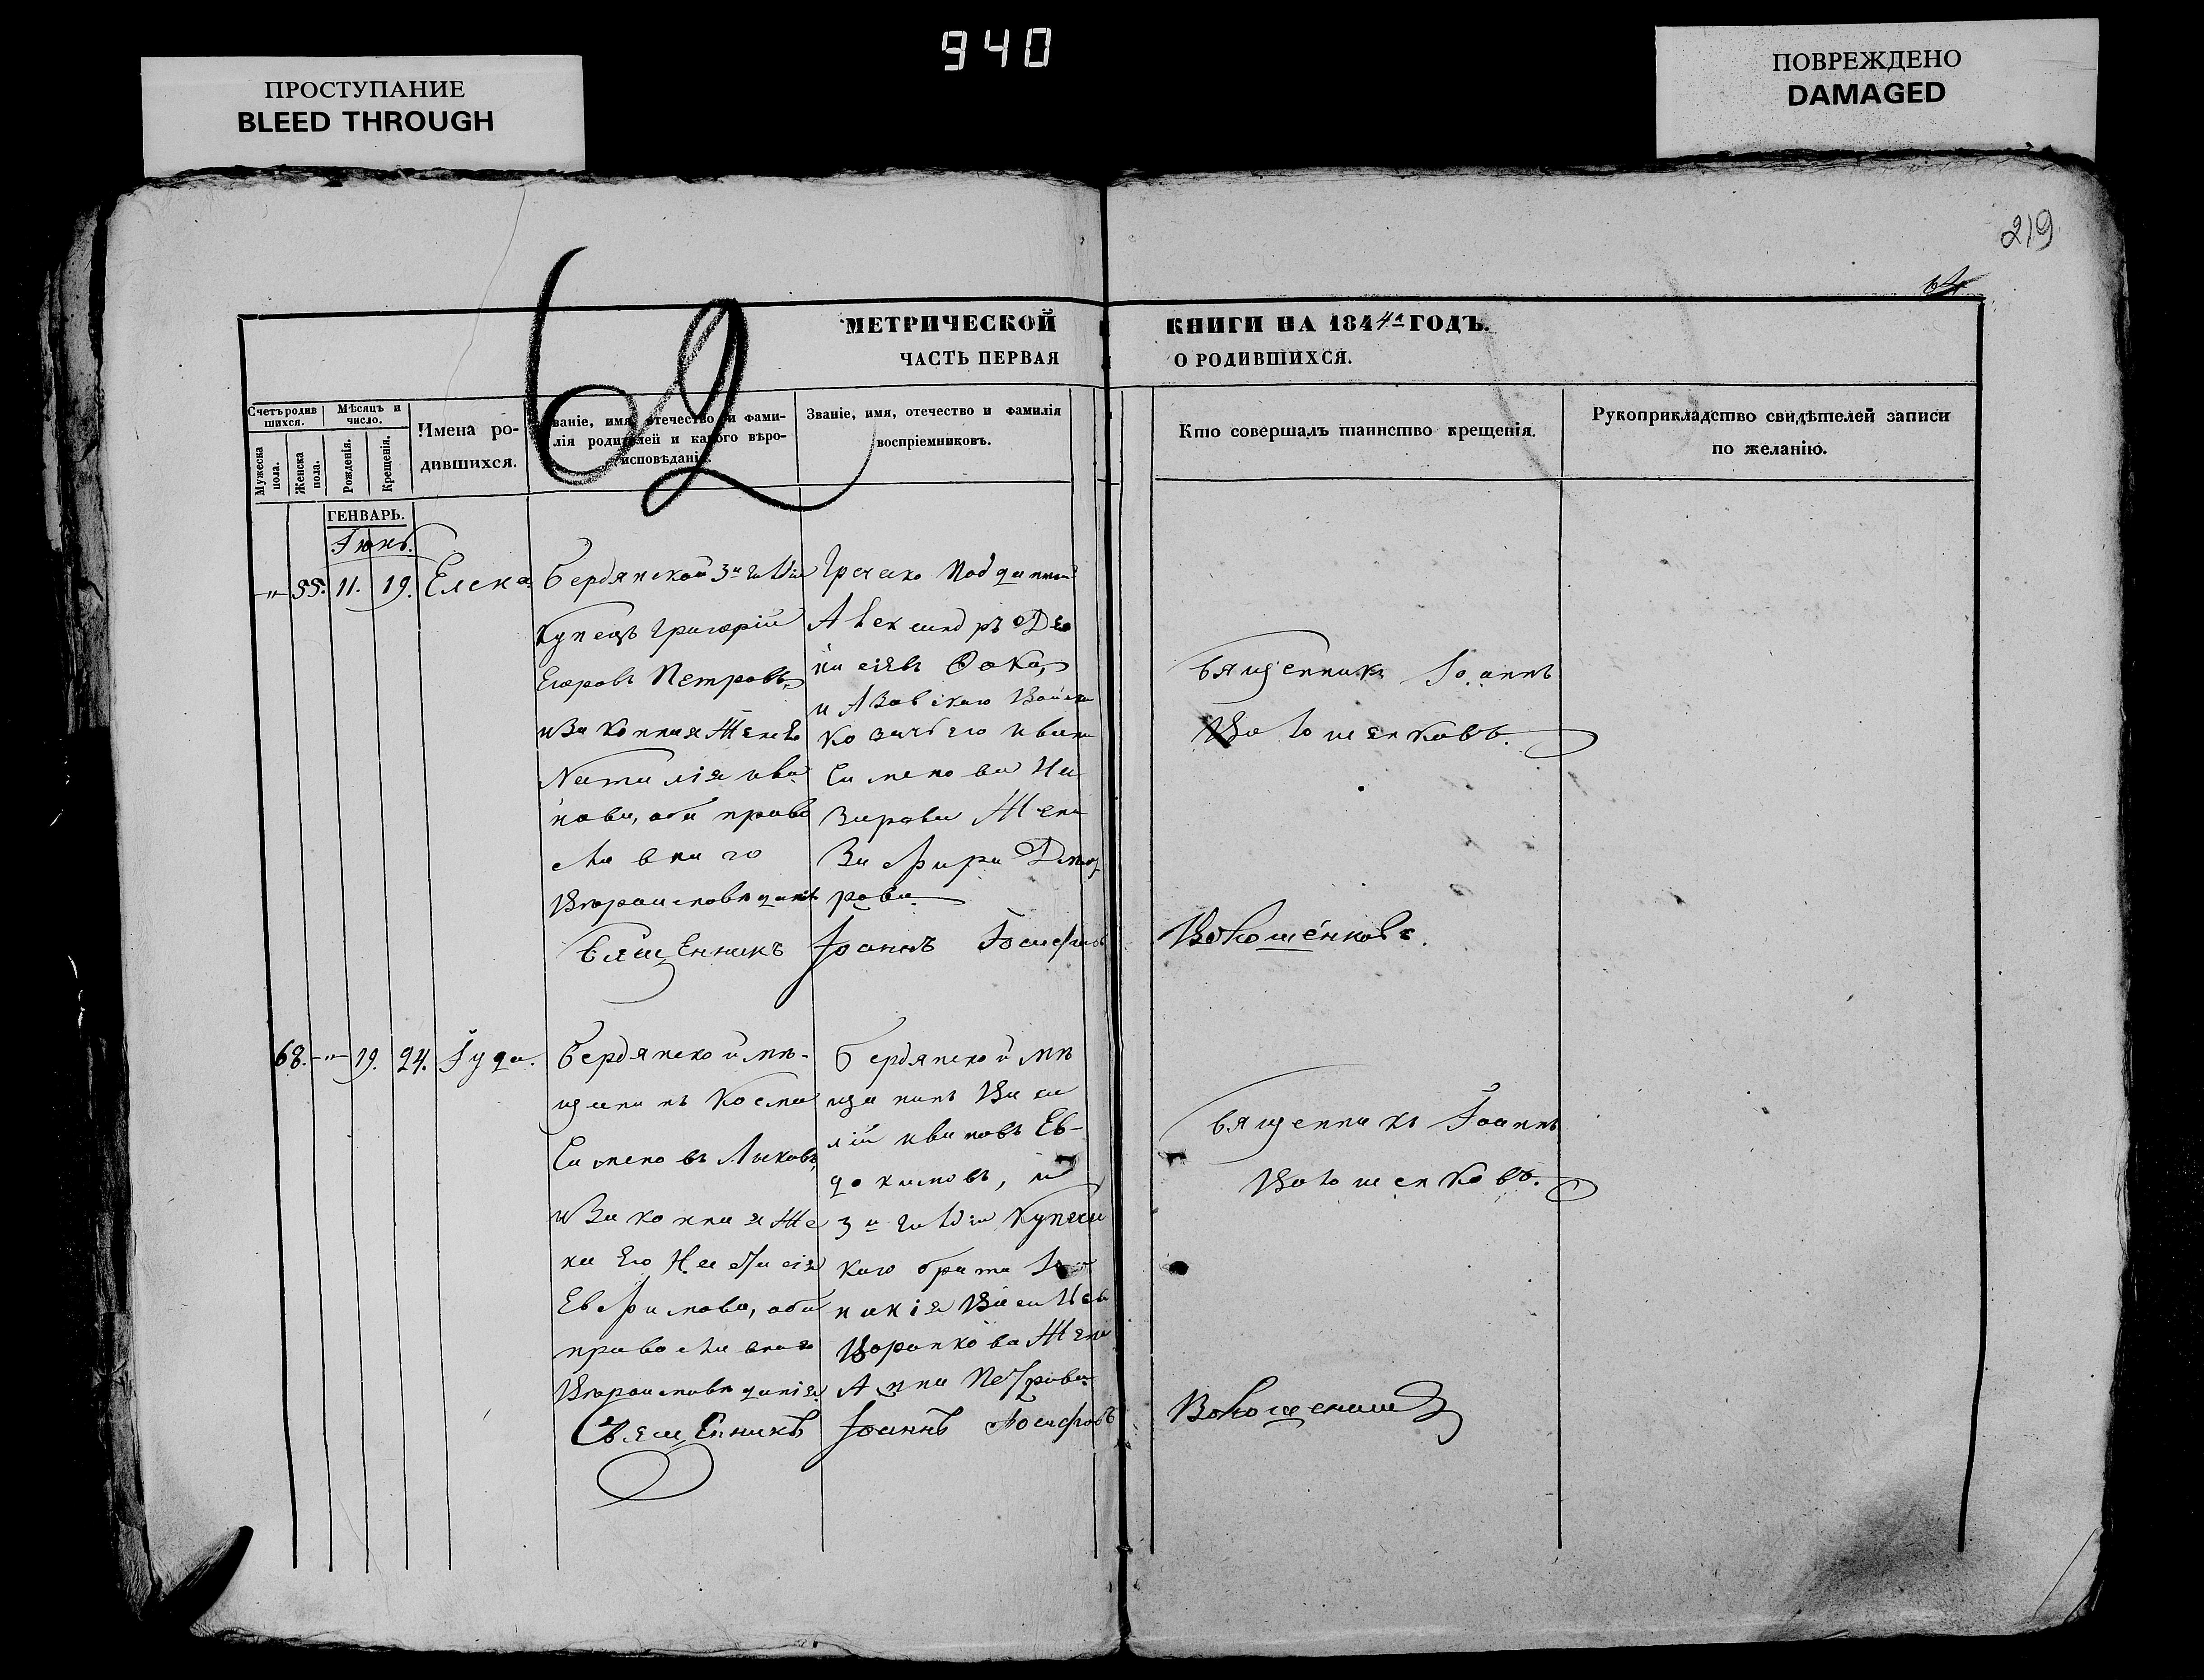 940
ПРОСТУПАНИЕ
BLEED THROUGH
ПОВРЕЖДЕНО
DAMAGED
219
64
62
МЕТРИЧЕСКОЙ КНИГИ НА 1844й ГОДЪ.
ЧАСТЬ ПЕРВАЯ О РОДИВШИХСЯ.
Счетъ родив
шихся.
Мужеска
пола.
Женска
пола.
Мѣсяцъ и
число.
Рожденія.
Крещенія.
Имена ро-
дившихся.
Званіе, имя, отечество и фами-
лія родителей и какого вѣро-
исповѣданія.
Званіе, имя, отечество и фамилія
воспріемниковъ.
Кто совершалъ таинство крещенія.
Рукоприкладство свидѣтелей записи
по желанію.
ГЕНВАРЬ.
Іюнь.
-"- 55. 11. 19. Елена.
Бердянской 3й гилдіи
Купецъ Григорій
Егоровъ Петровъ,
и Законная Жена Его
Наталія Ива
нова, оба право
славнаго
Вѣроисповѣданія
Греческо Подданный
Александръ
Фока,
и Азовскаго Войска
Козачьего Ивана
Симонова На
зарова Жена
Дмит
рова.
Священникъ Іоаннъ
Волошенковъ.
Священникъ Іоаннъ Іосифовъ Волошенковъ.
68. -"- 19. 24. Іуда.
Бердянской мѣ-
щанинъ Косма
Симоновъ Лыковъ,
и Законная Же
на Его Настасія
Евфимова, оба
православнаго
Вѣроисповѣданія
Бердянской мѣ
щанинъ Васи
лій Ивановъ Ев-
докимовъ, и
3й гилдіи Купече
каго брата
Васильева
Жена
Анна Петрова.
Священникъ Іоаннъ
Волошенковъ.
Священникъ Іоаннъ Іосифовъ